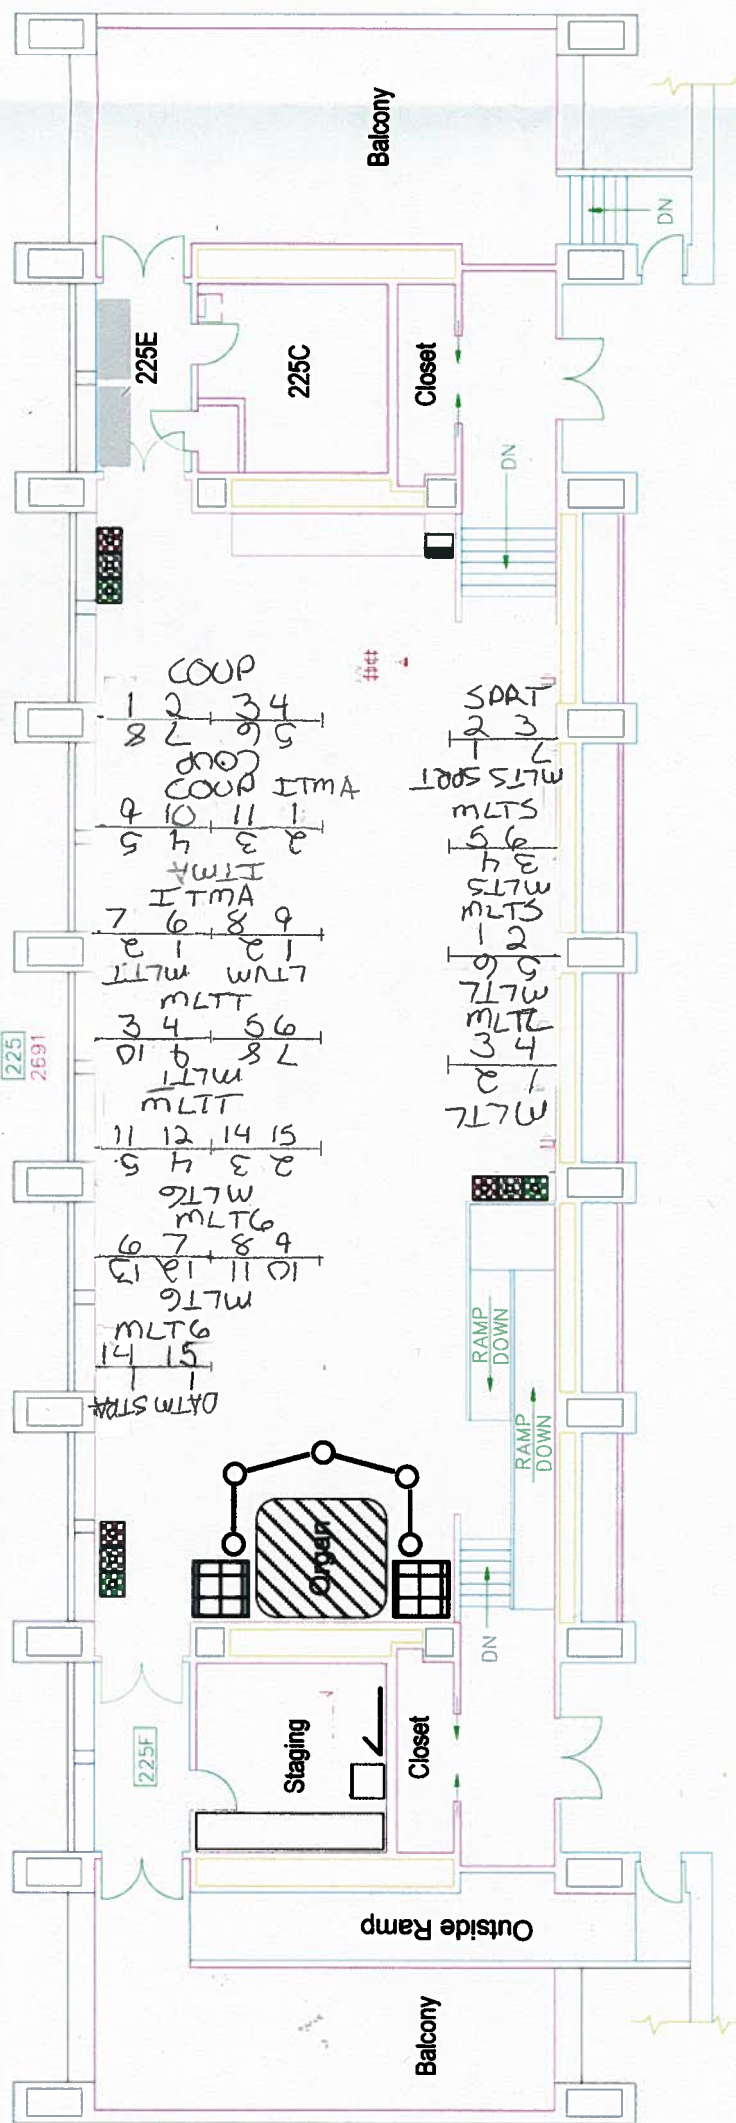 Balcony
DN
225E
225C
Closet
DN
COUP
1 2 3 4
8 7 6 5
COUP
COUP ITMA
9 10 11 1
5 4 3 2
ITMA
ITMA
7 6 8 9
2 1 2 1
MLTT LTVM
MLTT
3 4 5 6
10 9 8 7
MLTT
MLTT
11 12 14 15
5 4 3 2
MLT6
MLT6
6 7 8 9
13 12 11 10
MLT6
MLT6
14 15
1 1
STRA DATM
SPRT
2 3
7 1
MLTS SPRT
MLTS
6 5
3 4
MLTS
MLTS
2 1
5 6
MLTL
MLTL
3 4
1 2
MLTL
225
2691
RAMP DOWN
RAMP DOWN
Organ
DN
225F
Staging
Closet
Outside Ramp
Balcony